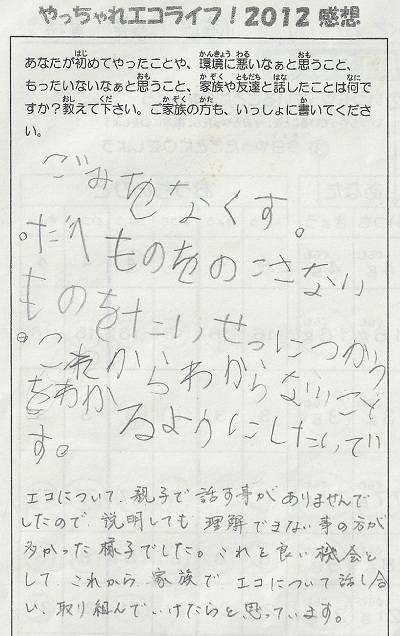 やっちゃれエコライフ！2012 感想
あなたが初めてやったことや、環境に悪いなぁと思うこと、
もったいないなぁと思うこと、家族や友達と話したことは何で
すか？教えて下さい。ご家族の方も、いっしょに書いてくださ
い。
ごみをなくす。
。たべものをのこさない
ものをたいせつにつかう
。これからわからないこと
をわかるようにしたいてい
す。
エコについて、親子で話す事がありませんで
したので、説明しても理解できない事の方が
多かった様子でした。これを良い機会と
して、これから、家族で エコについて話し合
い、取り組んでいけたらと思っています。